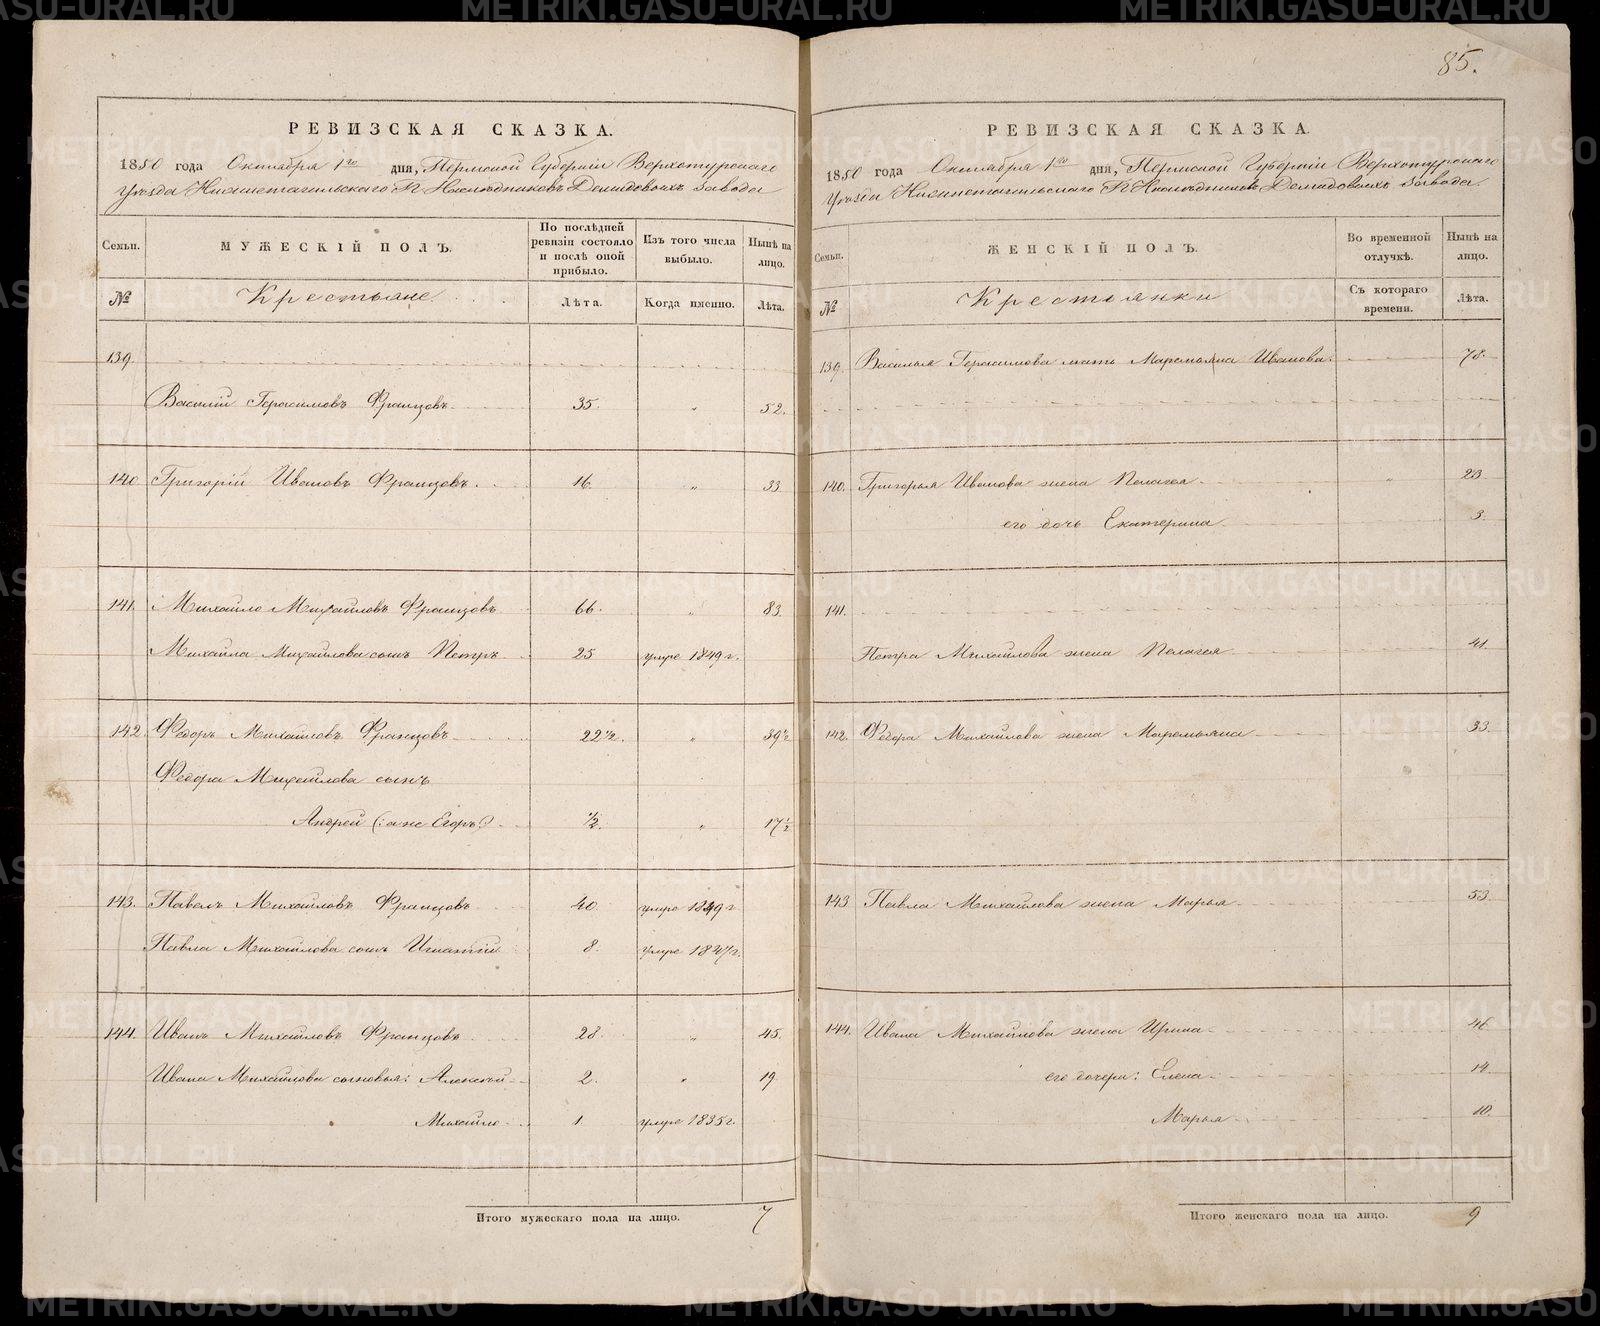 85.
РЕВИЗСКАЯ СКАЗКА.
1850 года Октября 1го дня, Пермской Губерніи Верхотурскаго
Уѣзда Нижнетагильскаго Г.г. Наслѣдниковъ Демидовыхъ завода
Семьи. МУЖЕСКІЙ ПОЛЪ. По послѣдней ревизіи состояло и послѣ оной прибыло. Изъ того числа выбыло. Нынѣ на лицо.
№ Крестьяне. Лѣта. Когда именно. Лѣта.
139.
Василій Герасимовъ Францовъ 35. " 52.
140 Григорій Ивановъ Францовъ. 16. " 33
141. Михайло Михайловъ Францовъ 66. " 83
Михайла Михайлова сынъ Петръ 25 умре 1849 г.
142. Федоръ Михайловъ Францовъ 22½. " 39½
Федора Михайлова сынъ
Андрей (: а не Егоръ :) ½. " 17½
143. Павелъ Михайловъ Францовъ 40. умре 1849 г
Павла Михайлова сынъ Игнатій 8. умре 1847 г.
144. Иванъ Михайловъ Францовъ 28 " 45.
Ивана Михайлова сыновья: Алексѣй 2. " 19
Михайло 1 умре 1835 г.
Итого мужескаго пола на лицо. 7
РЕВИЗСКАЯ СКАЗКА.
1850 года Октября 1го дня, Пермской Губерніи Верхотурскаго
Уѣзда Нижнетагильскаго Г.г. Наслѣдниковъ Демидовыхъ завода
Семьи. ЖЕНСКІЙ ПОЛЪ. Во временной отлучкѣ. Нынѣ на лицо.
№ Крестьянки Съ котораго времени. Лѣта.
139. Василья Герасимова мать Маремьяна Иванова. 78.
140. Григорья Иванова жена Пелагея " 23
его дочь Екатерина 3.
141.
Петра Михайлова жена Пелагея 41.
142. Федора Михайлова жена Маремьяна 33.
143 Павла Михайлова жена Марья 53.
144. Ивана Михайлова жена Ирина 46
его дочери: Елена 14.
Марья 10.
Итого женскаго пола на лицо. 9
METRIKI.GASO-URAL.RU